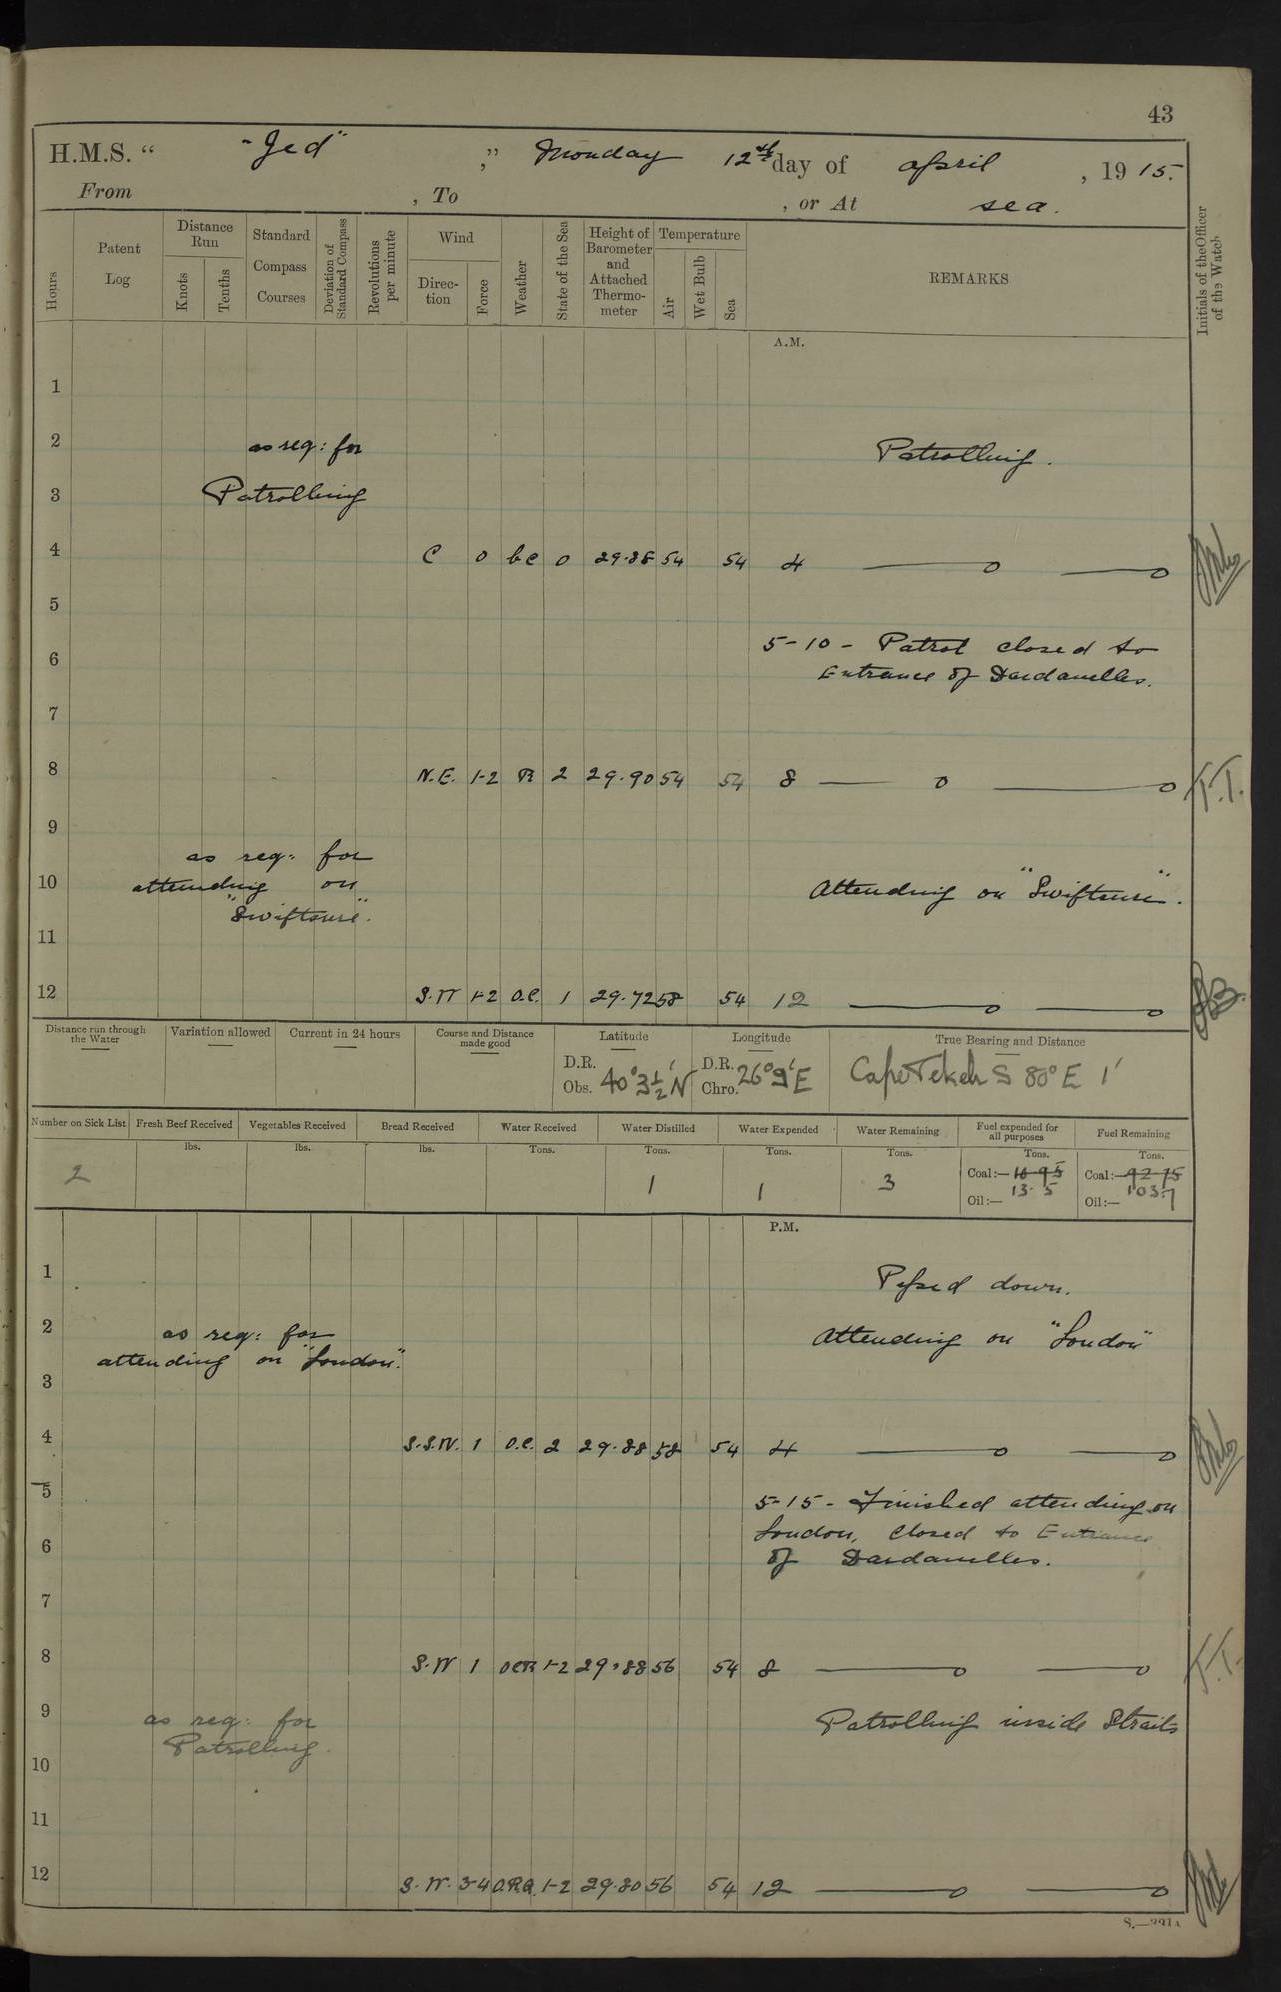 43
H.M.S. " "Jed" ," Monday 12th day of April , 1915.
From , To , or At sea.
Hours
Patent Log
Distance Run
Knots
Tenths
Standard Compass Courses
Deviation of Standard Compass
Revolutions per minute
Wind
Direction
Force
Weather
State of the Sea
Height of Barometer and Attached Thermometer
Temperature
Air
Wet Bulb
Sea
REMARKS
Initials of the Officer of the Watch
A.M.
1
2 as req: for Patrolling.
3 Patrolling
4 C 0 bc 0 29.88 54 54 4
5
5-10 - Patrol closed to
6 Entrance of Dardanelles.
7
8 N.E. 1-2 R 2 29.90 54 54 8 T.T.
9
as req: for
10 attending on Attending on "Swiftsure".
"Swiftsure".
11
12 S.W 1-2 O.C. 1 29.72 58 54 12
Distance run through the Water
Variation allowed
Current in 24 hours
Course and Distance made good
Latitude
D.R.
Obs. 40°3½'N
Longitude
D.R.
Chro. 26°9'E
True Bearing and Distance
Cape Tekeh S 80° E 1'
Number on Sick List
2
Fresh Beef Received
lbs.
Vegetables Received
lbs.
Bread Received
lbs.
Water Received
Tons.
Water Distilled
Tons.
1
Water Expended
Tons.
1
Water Remaining
Tons.
3
Fuel expended for all purposes
Tons.
Coal:— 16.95
13.5
Oil:—
Fuel Remaining
Tons.
Coal:— 92.75
103.7
Oil:—
P.M.
1 Passed down.
2 as req: for Attending on "London"
attending on "London".
3
4 S.S.W. 1 O.C. 2 29.88 58 54 4
5 5-15 - Finished attending on
London, closed to Entrance
6 of Dardanelles.
7
8 S.W 1 OCR 1-2 29.88 56 54 8 T.T.
9 as req: for Patrolling inside Straits
Patrolling.
10
11
12 S.W. 3-4 O.R.Q. 1-2 29.80 56 54 12
S.—321A